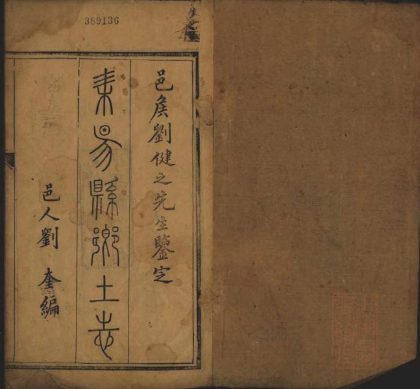 389136
邑侯劉健之先生鑒定
耒昜縣鄉土志
邑人劉 奎編